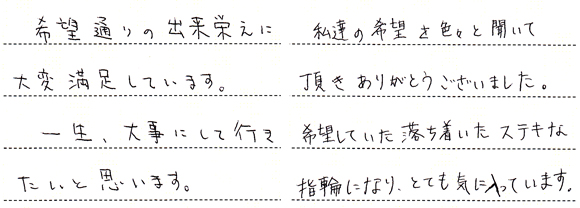 希望通りの出来栄えに
大変満足しています。
一生、大事にして行き
たいと思います。
私達の希望を色々と聞いて
頂きありがとうございました。
希望していた落ち着いたステキな
指輪になり、とても気に入っています。